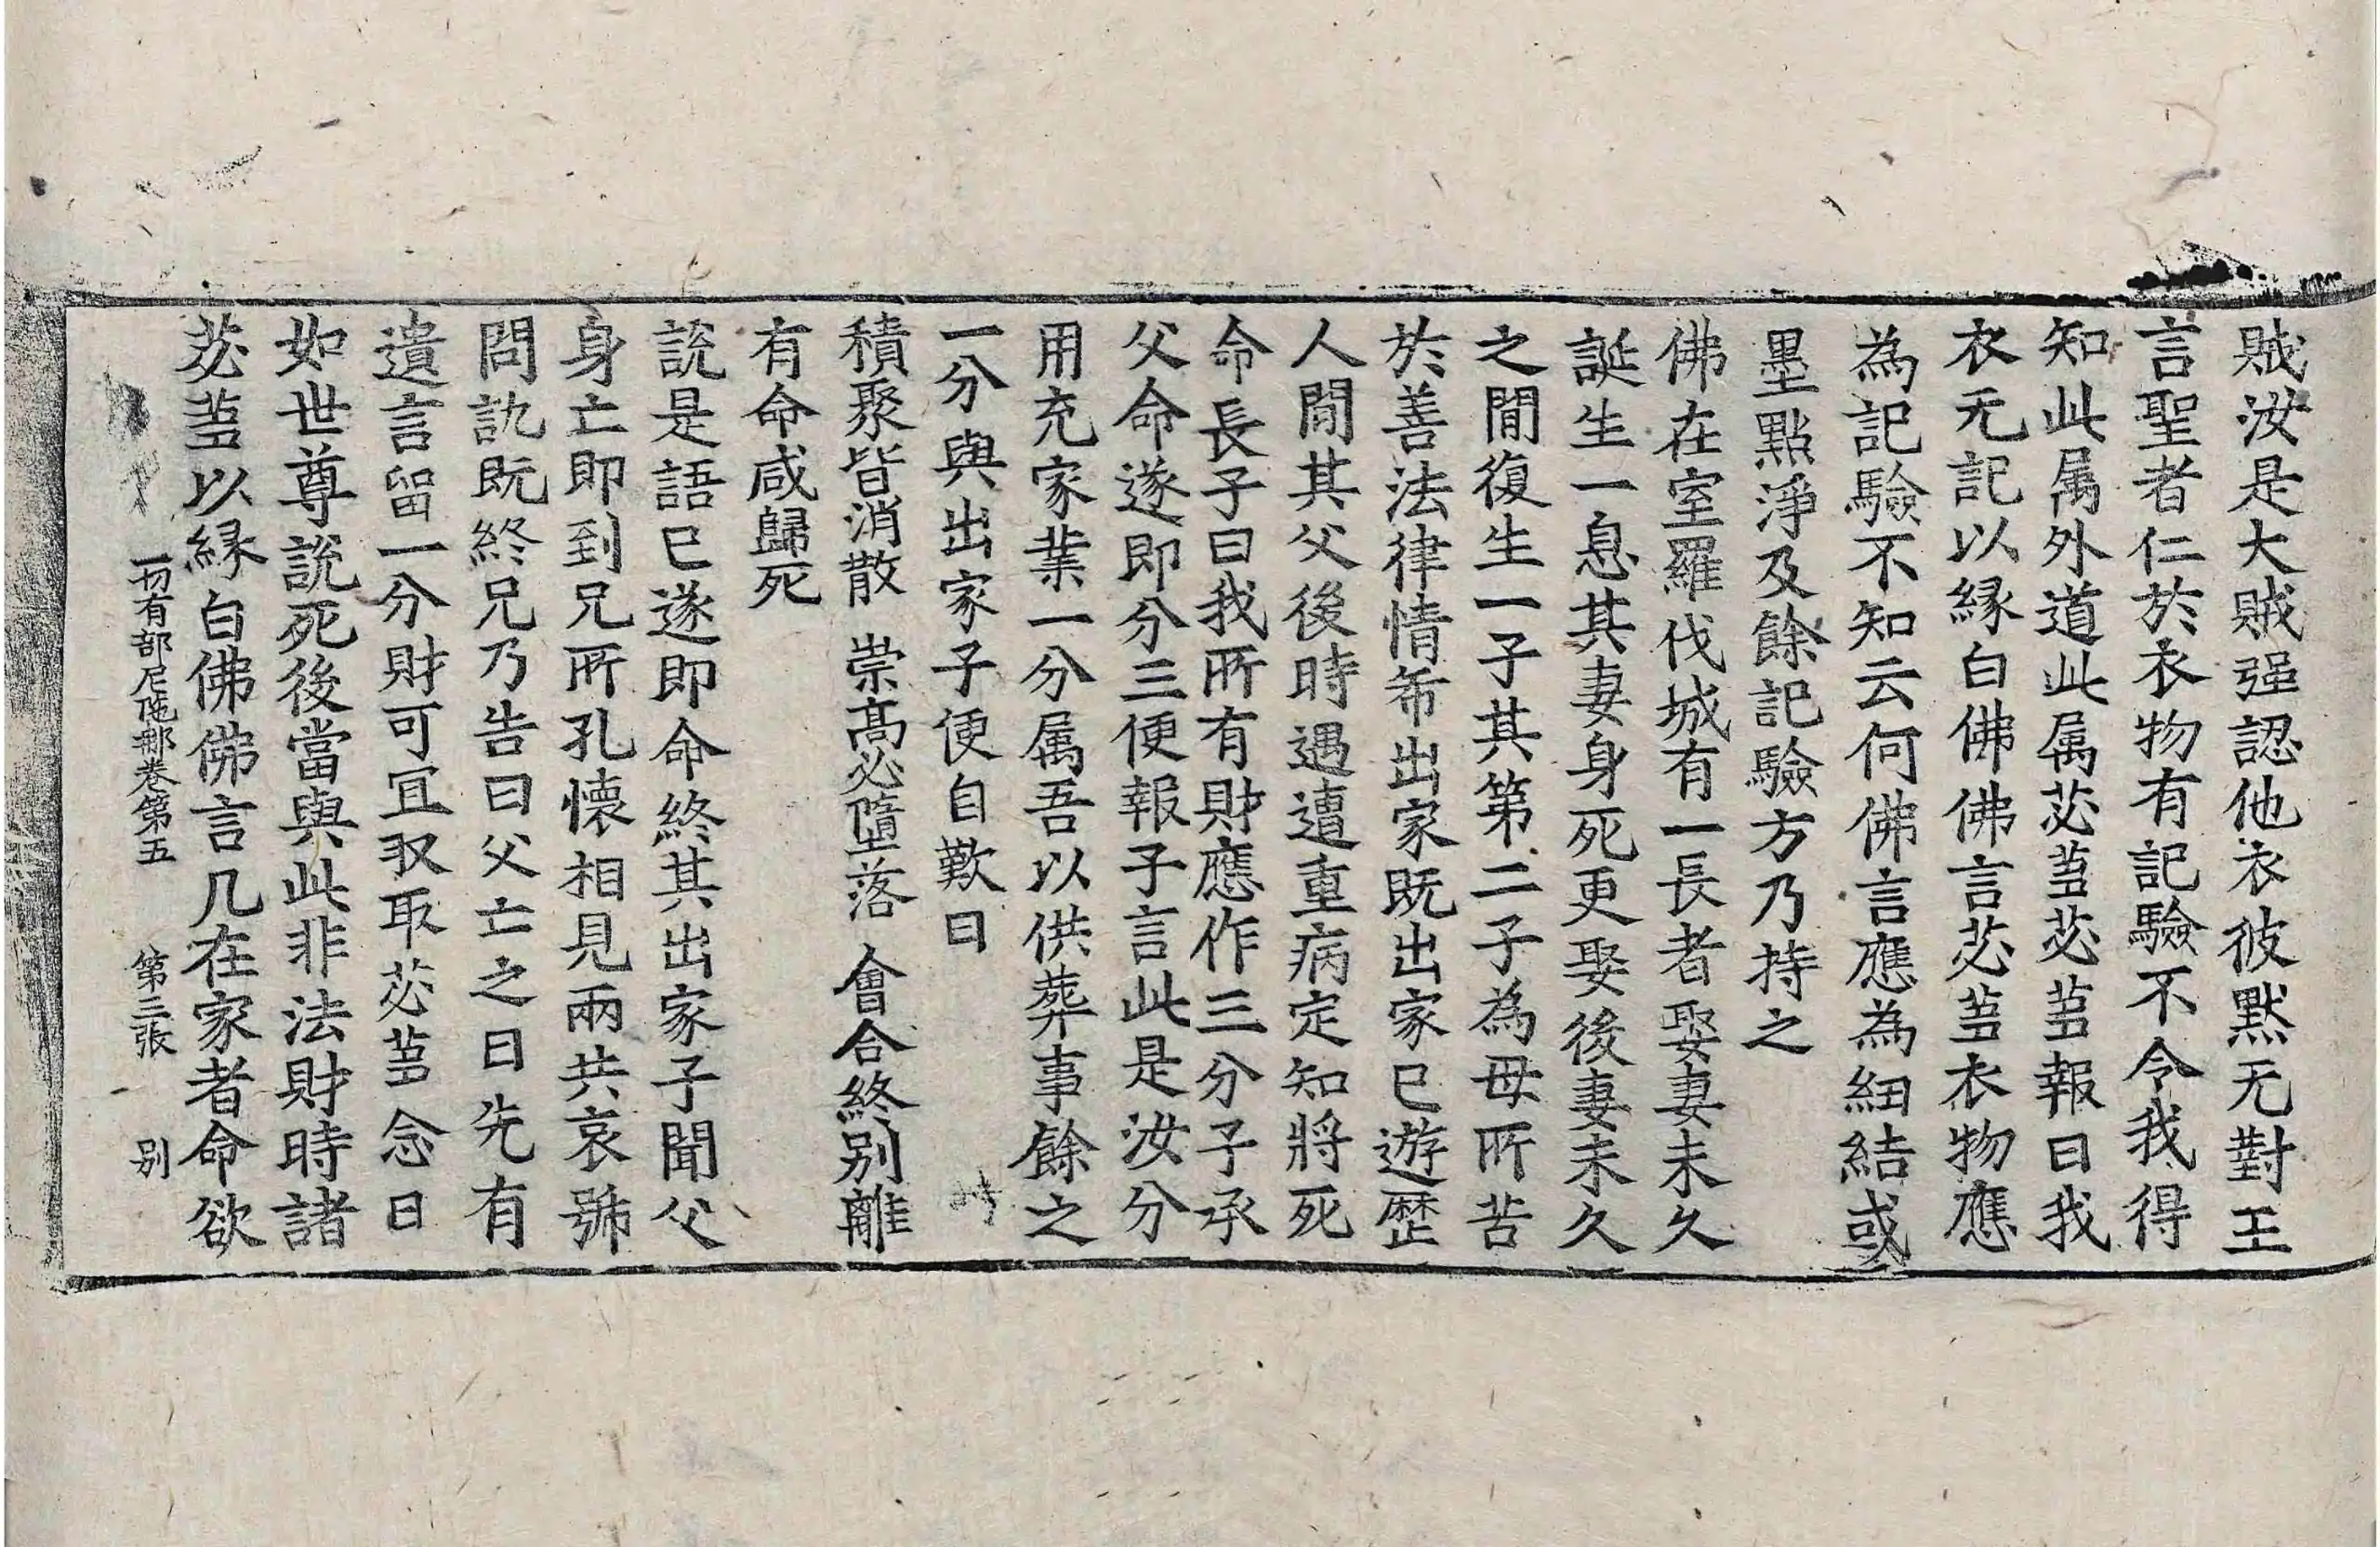 賊汝是大賊强認他衣彼黙无對王
言聖者仁於衣物有記驗不令我得
知此属外道此属苾蒭苾蒭報曰我
衣无記以縁白佛佛言苾蒭衣物應
為記驗不知云何佛言應為細結或
墨點淨及餘記驗方乃持之
佛在室羅伐城有一長者娶妻未久
誕生一息其妻身死更娶後妻未久
之間復生一子其第二子為母所苦
於善法律情希出家既出家已遊歷
人間其父後時遇遭重病定知將死
命長子曰我所有財應作三分子承
父命遂即分三便報子言此是汝分
用充家業一分属吾以供葬事餘之
一分與出家子便自歎曰
積聚皆消散　崇髙必墮落　會合終别離
有命咸歸死
說是語已遂即命終其出家子聞父
身亡即到兄所孔懷相見兩共哀號
問訊既終兄乃告曰父亡之日先有
遺言留一分財可冝収取苾蒭念曰
如世尊說死後當與此非法財時諸
苾蒭以縁白佛佛言凡在家者命欲
一切有部尼陁那卷第五　第三張　别